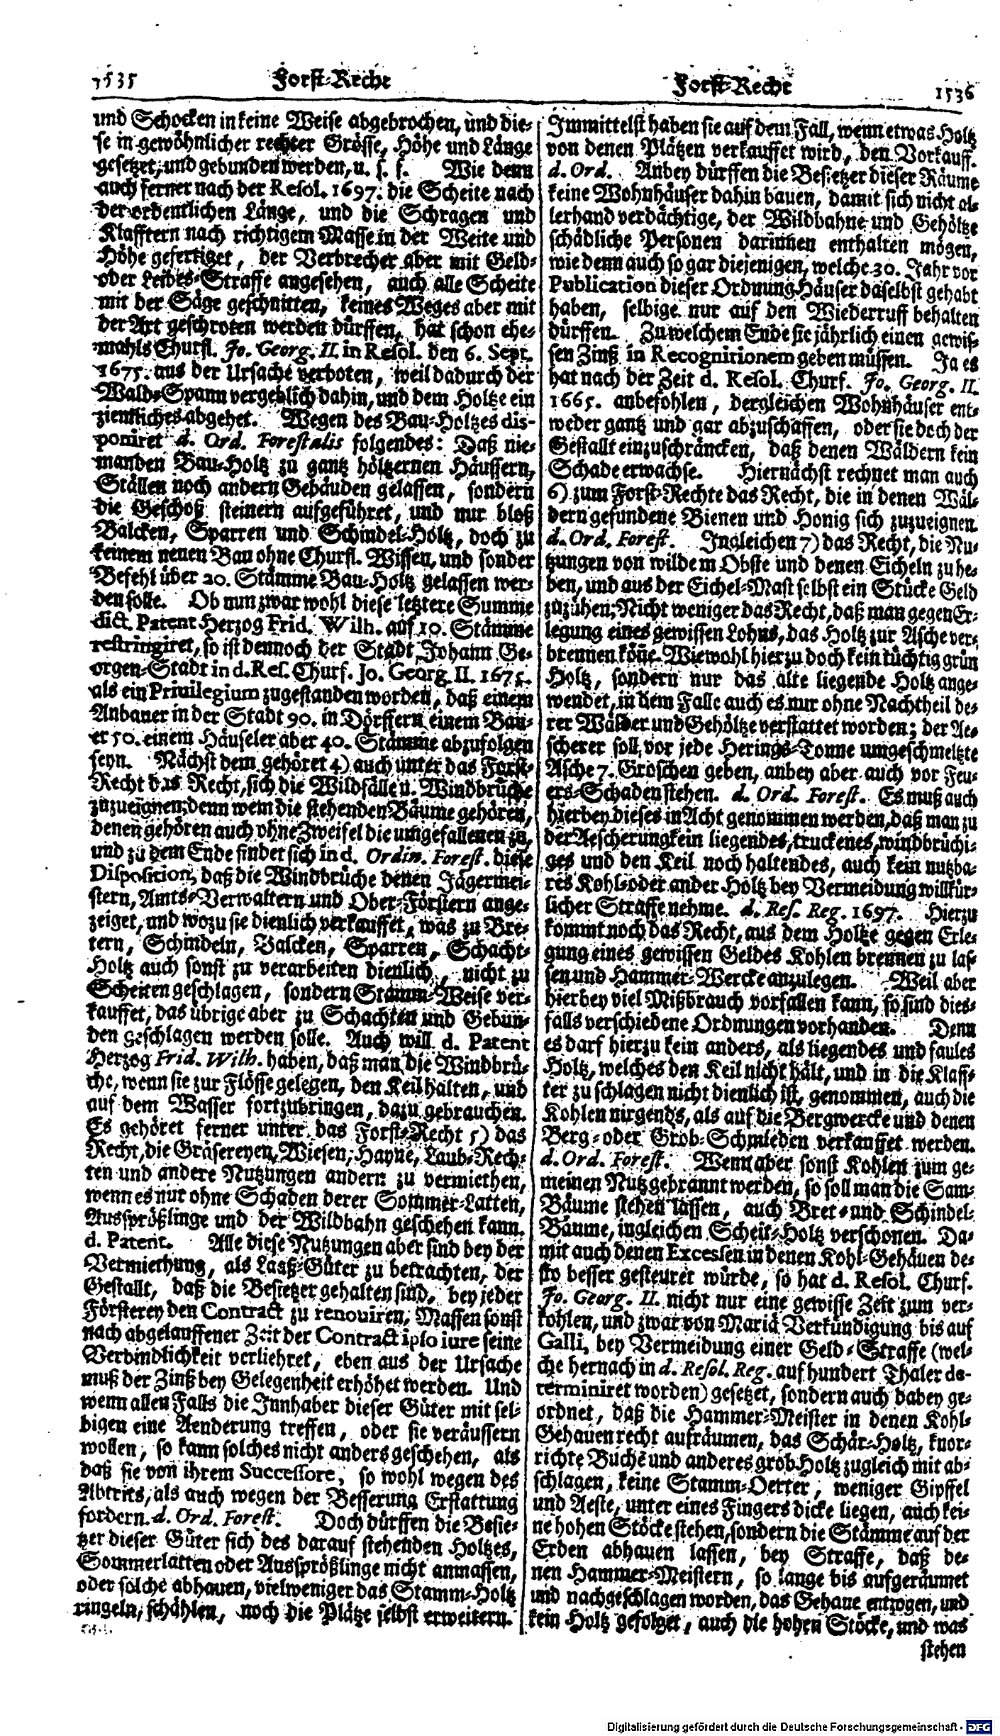 1535 Forst-Recht
Forst-Recht 1536
und Schocken in keine Weise abgebrochen, und die-
se in gewöhnlicher rechter Grösse, Höhe und Länge
gesetzet, und gebunden werden, u. s. f. Wie denn
auch ferner nach der Resol. 1697. die Scheite nach
der ordentlichen Länge, und die Schragen und
Klafftern nach richtigem Masse in der Weite und
Höhe gefertiget, der Verbrecher aber mit Geld-
oder Leibes-Straffe angesehen, auch alle Scheite
mit der Säge geschnitten, keines Weges aber mit
der Art geschroten werden dürffen, hat schon ehe-
mahls Churfl. Jo. Georg. II. in Resol. den 6. Sept.
1675. aus der Ursache verboten, weil dadurch der
Wald-Spann vergeblich dahin, und dem Holtze ein
ziemliches abgehet. Wegen des Bau-Holtzes dis-
poniret d. Ord. Forestalis folgendes: Daß nie-
manden Bau-Holtz zu gantz höltzernen Häussern,
Ställen noch andern Gebäuden gelassen, sondern
die Geschoß steinern aufgeführet, und nur bloß
Balcken, Sparren und Schindel-Holtz, doch zu
keinem neuen Bau ohne Churfl. Wissen, und sonder
Befehl über 20. Stämme Bau-Holtz gelassen wer-
den solle. Ob nun zwar wohl diese letztere Summe
dict. Patent Herzog Frid. Wilh. auf 10. Stämme
restringiret, so ist dennoch der Stadt Johann Ge-
orgen-Stadt in d. Res. Churf. Jo. Georg. II. 1675.
als ein Privilegium zugestanden worden, daß einem
Anbauer in der Stadt 90. in Dörffern einem Bau-
er 50. einem Häuseler aber 40. Stämme abzufolgen
seyn. Nächst dem gehöret 4) auch unter das Forst-
Recht das Recht, sich die Wildfälle u. Windbrüche
zuzueignen; denn wem die stehenden Bäume gehören,
denen gehören auch ohne Zweifel die umgefallenen zu,
und zu dem Ende findet sich in d. Ordin. Forest. diese
Disposition, daß die Windbrüche denen Jägermei-
stern, Amts-Verwaltern und Ober-Förstern ange-
zeiget, und wozu sie dienlich verkauffet, was zu Bre-
tern, Schindeln, Balcken, Sparren, Schacht-
Holtz auch sonst zu verarbeiten dienlich, nicht zu
Scheiten geschlagen, sondern Stamm-Weise ver-
kauffet, das übrige aber zu Schachten und Gebun-
den geschlagen werden solle. Auch will d. Patent
Herzog Frid. Wilh. haben, daß man die Windbrü-
che, wenn sie zur Flösse gelegen, den Keil halten, und
auf dem Wasser fortzubringen, dazu gebrauchen.
Es gehöret ferner unter das Forst-Recht 5) das
Recht, die Gräsereyen, Wiesen, Hayne, Laub-Rech-
ten und andere Nutzungen andern zu vermiethen,
wenn es nur ohne Schaden derer Sommer-Latten,
Aussprößlinge und der Wildbahn geschehen kann.
d. Patent. Alle diese Nutzungen aber sind bey der
Vermiethung, als Laaß-Güter zu betrachten, der
Gestallt, daß die Besietzer gehalten sind, bey jeder
Försterey den Contract zu renoviren, Massen sonst
nach abgelauffener Zeit der Contract ipso iure seine
Verbindlichkeit verliehret, eben aus der Ursache
muß der Zinß bey Gelegenheit erhöhet werden. Und
wenn allen Falls die Innhaber dieser Güter mit sel-
bigen eine Aenderung treffen, oder sie veräussern
wollen, so kann solches nicht anders geschehen, als
daß sie von ihrem Successore, so wohl wegen des
Abtrits, als auch wegen der Besserung Erstattung
fordern. d. Ord. Forest. Doch dürffen die Besie-
tzer dieser Güter sich des darauf stehenden Holtzes,
Sommerlatten oder Aussprößlinge nicht anmassen,
oder solche abhauen, vielweniger das Stamm-Holtz
ringeln, schählen, noch die Plätze selbst erweitern.
Immittelst haben sie auf dem Fall, wenn etwas Holtz
von denen Plätzen verkauffet wird, den Vorkauff.
d. Ord. Anbey dürffen die Besietzer dieser Räume
keine Wohnhäuser dahin bauen, damit sich nicht al-
lerhand verdächtige, der Wildbahne und Gehöltze
schädliche Personen darinnen enthalten mögen,
wie denn auch so gar diejenigen, welche 30. Jahr vor
Publication dieser Ordnung Häuser daselbst gehabt
haben, selbige nur auf den Wiederruff behalten
dürffen. Zu welchem Ende sie jährlich einen gewis-
sen Zinß in Recognitionem geben müssen. Ja es
hat nach der Zeit d. Resol. Churf. Jo. Georg. II.
1665. anbefohlen, dergleichen Wohnhäuser ent-
weder gantz und gar abzuschaffen, oder sie doch der
Gestallt einzuschräncken, daß denen Wäldern kein
Schade erwachse. Hiernächst rechnet man auch
6) zum Forst-Rechte das Recht, die in denen Wäl-
dern gefundene Bienen und Honig sich zuzueignen.
d. Ord. Forest. Ingleichen 7) das Recht, die Nu-
tzungen von wildem Obste und denen Eicheln zu he-
ben, und aus der Eichel-Mast selbst ein Stücke Geld
zuzühen; Nicht weniger das Recht, daß man gegen Er-
legung eines gewissen Lohns, das Holtz zur Asche ver-
brennen köñe. Wiewohl hierzu doch kein tüchtig grün
Holtz, sondern nur das alte liegende Holtz ange-
wendet, in dem Falle auch es nur ohne Nachtheil de-
rer Wälder und Gehöltze verstattet worden; der Ae-
scherer soll vor jede Herings-Tonne umgeschmeltzte
Asche 7. Groschen geben, anbey aber auch vor Feu-
ers-Schaden stehen. d. Ord. Forest. Es muß auch
hierbey dieses in Acht genommen werden, daß man zu
der Aescherung kein liegendes, truckenes, windbrüchi-
ges und den Keil noch haltendes, auch kein nutzba-
res Kohl- oder ander Holtz bey Vermeidung willkür-
licher Straffe nehme. d. Res. Reg. 1697. Hierzu
kommt noch das Recht, aus dem Holtze gegen Erle-
gung eines gewissen Geldes Kohlen brennen zu las-
sen und Hammer-Wercke anzulegen. Weil aber
hierbey viel Mißbrauch vorfallen kann, so sind dies-
falls verschiedene Ordnungen vorhanden. Denn
es darf hierzu kein anders, als liegendes und faules
Holtz, welches den Keil nicht hält, und in die Klaff-
ter zu schlagen nicht dienlich ist, genommen, auch die
Kohlen nirgends, als auf die Bergwercke und denen
Berg- oder Grob-Schmieden verkauffet werden.
d. Ord. Forest. Wenn aber sonst Kohlen zum ge-
meinen Nutz gebrannt werden, so soll man die Sam-
Bäume stehen lassen, auch Bret- und Schindel-
Bäume, ingleichen Scheit-Holtz verschonen. Da-
mit auch denen Excessen in denen Kohl-Gehäuen de-
sto besser gesteuret würde, so hat d. Resol. Churf.
Jo. Georg. II. nicht nur eine gewisse Zeit zum ver-
kohlen, und zwar von Mariä Verkündigung bis auf
Galli, bey Vermeidung einer Geld-Straffe (wel-
che hernach in d. Resol. Reg. auf hundert Thaler de-
terminiret worden) gesetzet, sondern auch dabey ge-
ordnet, daß die Hammer-Meister in denen Kohl-
Gehauen recht aufräumen, das Schär-Holtz, knor-
richte Buche und anderes grob Holtz zugleich mit ab-
schlagen, keine Stamm-Oerter, weniger Gipffel
und Aeste, unter eines Fingers dicke liegen, auch kei-
ne hohen Stöcke stehen, sondern die Stämme auf der
Erden abhauen lassen, bey Straffe, daß de-
nen Hammer-Meistern, so lange bis aufgeräumet
und nachgeschlagen worden, das Gehaue entzogen, und
kein Holtz gefolget, auch die hohen Stöcke, und was
stehen
Digitalisierung gefördert durch die Deutsche Forschungsgemeinschaft - DFG